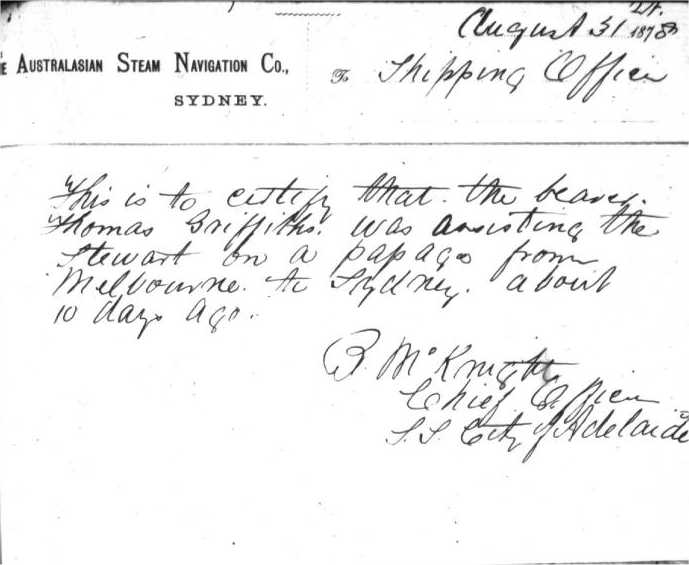 August 31st. 1878
THE AUSTRALASIAN STEAM NAVIGATION CO.,
SYDNEY.
To Shipping Officer
This is to certify that the bearer.
Thomas Griffiths. was assisting the
Stewart on a papage from
Melbourne. to Sydney. about
10 days ago.
B. McKnight
Chief Officer
S.S. City of Adelaide